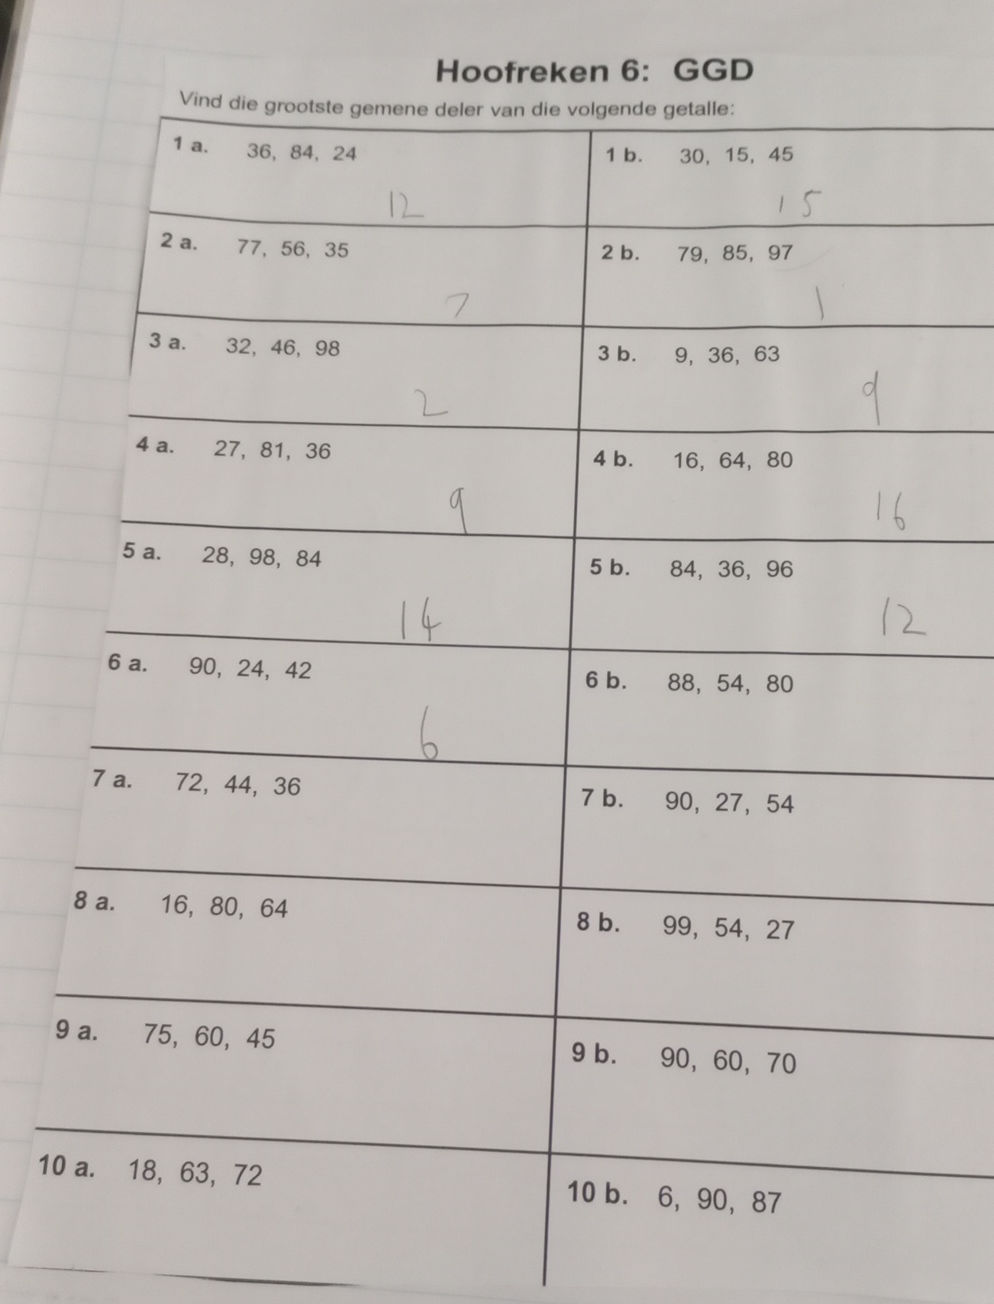 Hoofreken 6: GGD
Vind die grootste gemene deler van die volgende getalle:
1 a. 36, 84, 24
12
1 b. 30, 15, 45
15
2 a. 77, 56, 35
7
2 b. 79, 85, 97
1
3 a. 32, 46, 98
2
3 b. 9, 36, 63
9
4 a. 27, 81, 36
9
4 b. 16, 64, 80
16
5 a. 28, 98, 84
14
5 b. 84, 36, 96
12
6 a. 90, 24, 42
6
6 b. 88, 54, 80
7 a. 72, 44, 36
7 b. 90, 27, 54
8 a. 16, 80, 64
8 b. 99, 54, 27
9 a. 75, 60, 45
9 b. 90, 60, 70
10 a. 18, 63, 72
10 b. 6, 90, 87